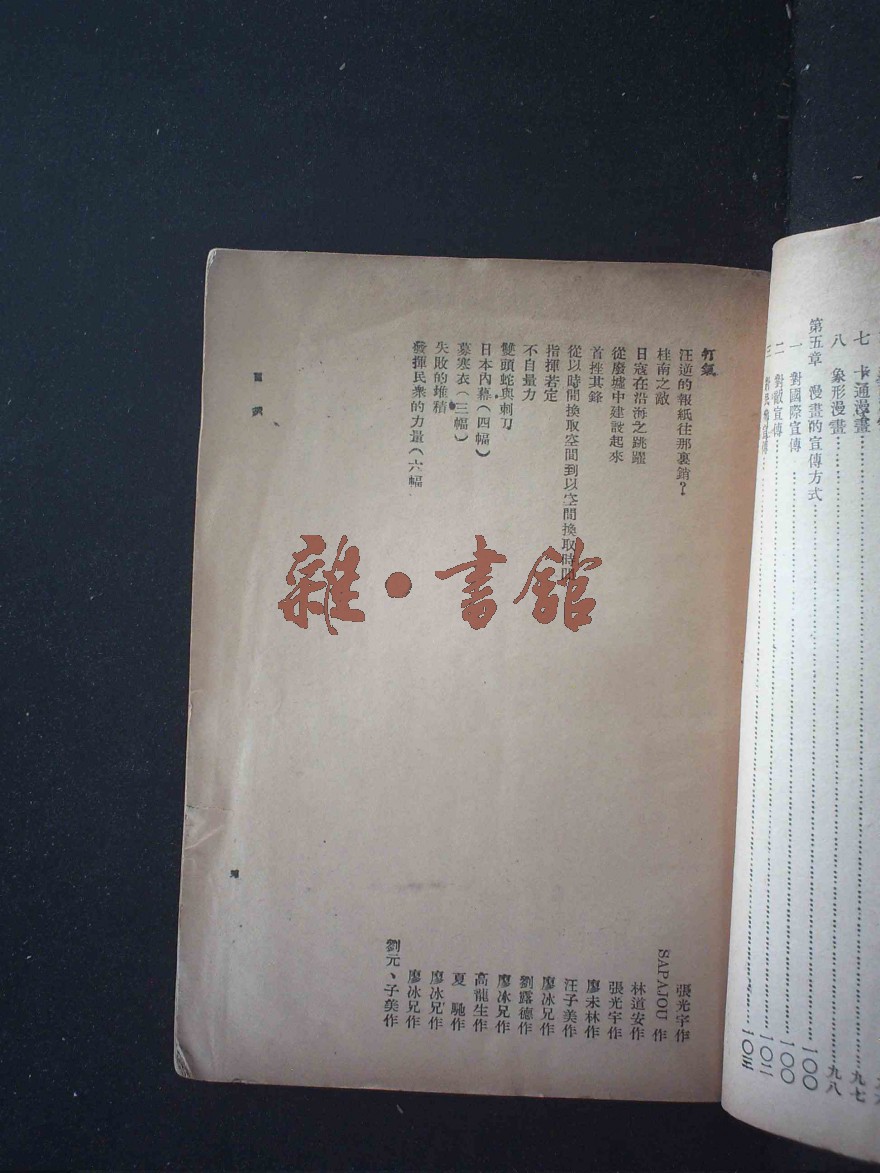 七 卡通漫畫……九七
八 象形漫畫……九八
第五章 漫畫的宣傳方式……一〇〇
一 對國際宣傳……一〇〇
二 對敵宣傳……一〇二
三 對民衆宣傳……一〇三
打氣 張光宇作
汪逆的報紙往那裏銷？ SAPAJOU 作
桂南之敵 林道安作
日寇在沿海之跳躍 張光宇作
從廢墟中建設起來 廖未林作
首挫其鋒 汪子美作
從以時間換取空間到以空間換取時間 廖冰兄作
指揮若定 劉露德作
不自量力 廖冰兄作
雙頭蛇與刺刀 高龍生作
日本內幕（四幅） 夏馳作
募寒衣（三幅） 廖冰兄作
失敗的堆積 廖冰兄作
發揮民衆的力量（六幅 劉元、子美作
雜·書館